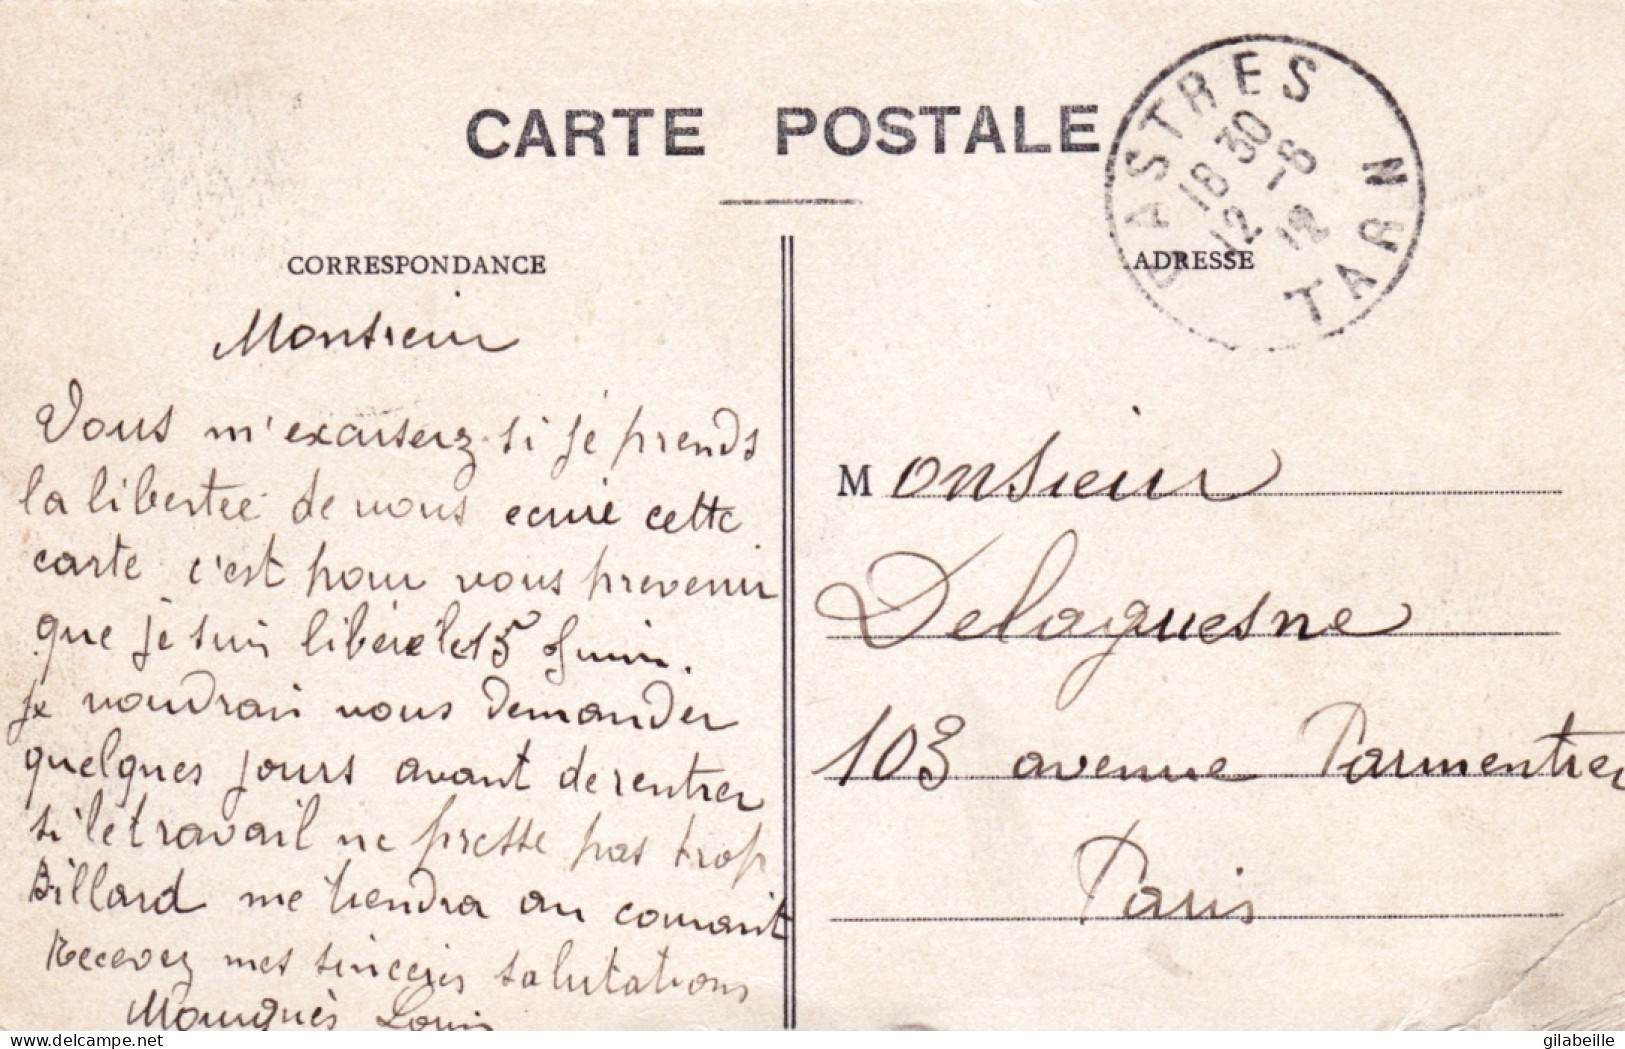 CARTE POSTALE
CASTRES
18 30
12 - 6
12
TARN
CORRESPONDANCE
Monsieur
Vous m'excuserz si je prends
la libertée de vous ecrire cette
carte c'est pour vous prevenir
que je suis libéré le 15 Juin.
Je voudrais vous demander
quelques jours avant de rentrer
si le travail ne presse pas trop
Billard me tiendra au courant
Recevez mes sincères salutations
Mourguès Louis
ADRESSE
Monsieur
Delaguesne
103 avenue Parmentier
Paris
delcampe.net
gilabeille